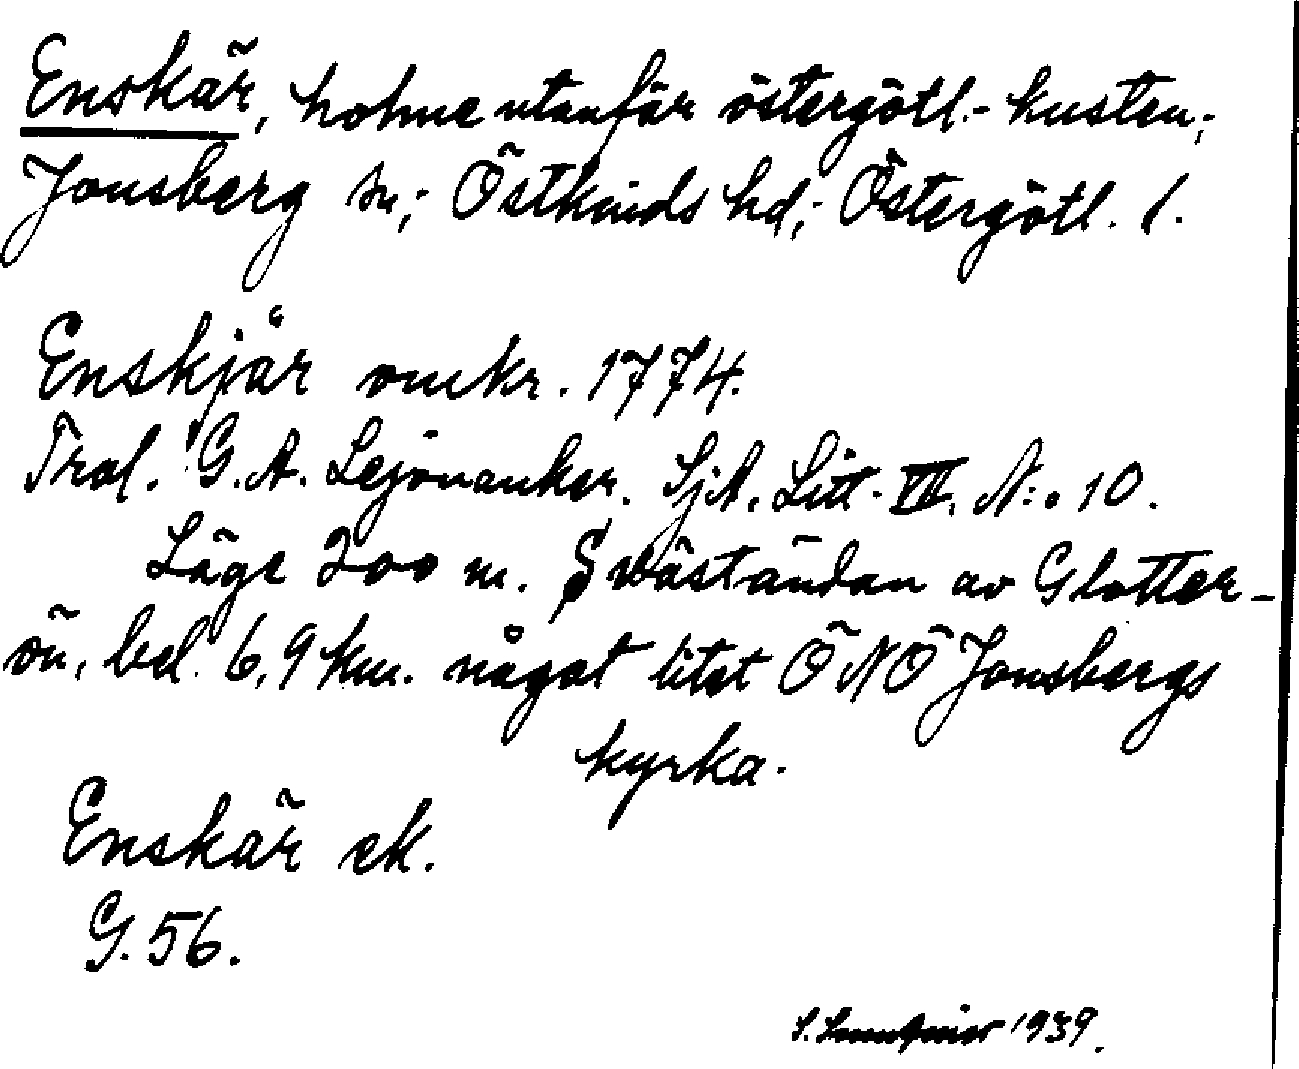 Enskär, holme utanför östergötl.- kusten;
Jonsberg sn; Östkinds hd; Östergötl. l.
Enskjär omkr. 1774.
Trol. G. A. Lejonanker. SjA. Litt. VII. N:o 10.
Läge 200 m. S väständan av Glotter-
ön, bel. 6,9 km. något litet ÖNÖ Jonsbergs
kyrka.
Enskär ek.
G. 56.
S. 1939.